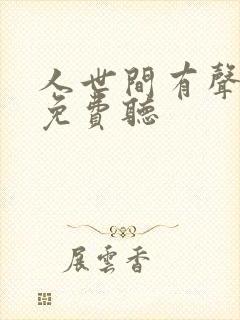 人世間有聲
免費聽
展雲香